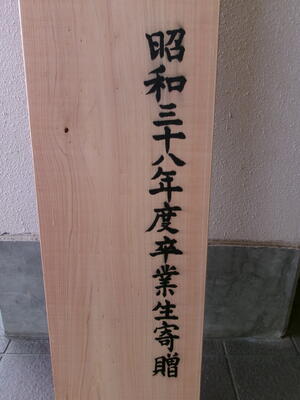 昭和三十八年度卒業生寄贈